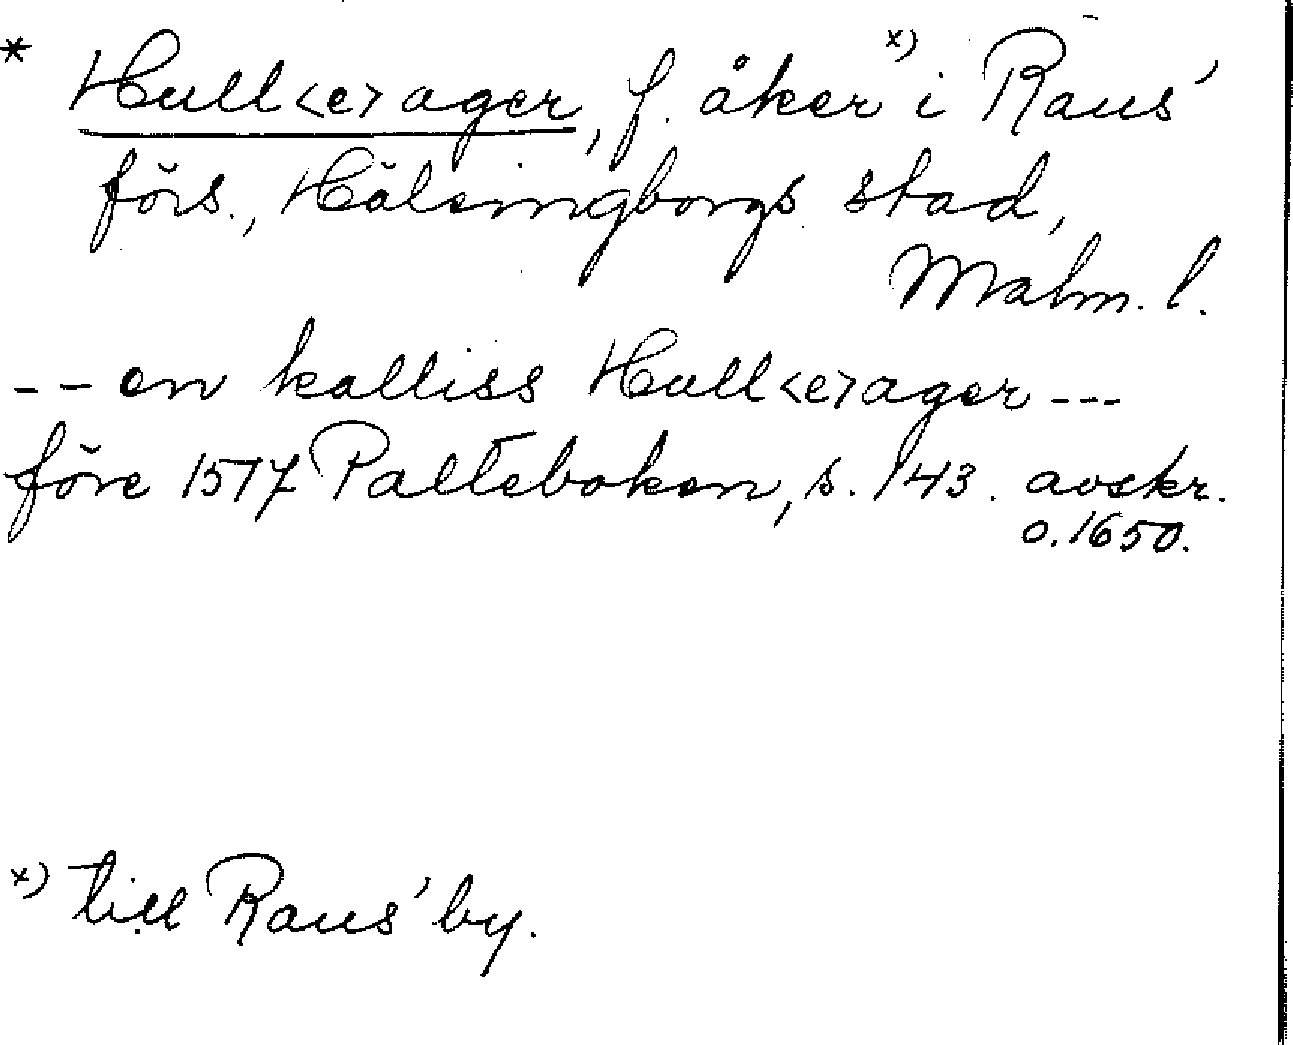 * Hull<e>ager, f. åker x) i Raus'
förs., Hälsingborgs stad,
Malm. l.
-- en kalliss Hull<e>ager ---
före 1517 Palteboken, s. 143. avskr.
o. 1650.
x) till Raus' by.